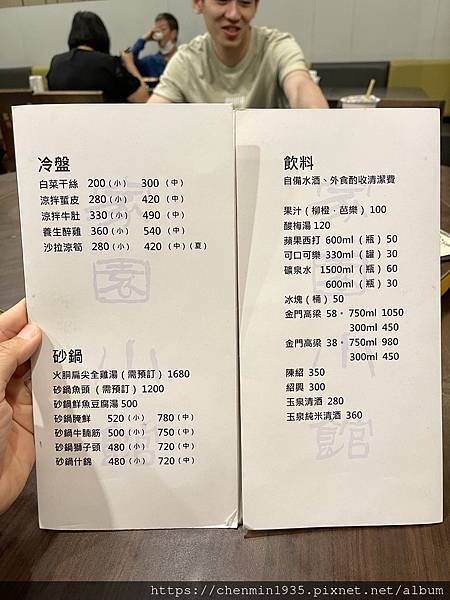 冷盤
白菜干絲 200(小) 300(中)
涼拌蜇皮 280(小) 420(中)
涼拌牛肚 330(小) 490(中)
養生醉雞 360(小) 540(中)
沙拉涼筍 280(小) 420(中)(夏)
砂鍋
火胴扁尖全雞湯(需預訂)1680
砂鍋魚頭(需預訂)1200
砂鍋鮮魚豆腐湯 500
砂鍋醃鮮 520(小) 780(中)
砂鍋牛腩筋 500(小) 750(中)
砂鍋獅子頭 480(小) 720(中)
砂鍋什錦 480(小) 720(中)
飲料
自備水酒、外食酌收清潔費
果汁(柳橙・芭樂)100
酸梅湯 120
蘋果西打 600ml(瓶)50
可口可樂 330ml(罐)30
礦泉水 1500ml(瓶)60
600ml(瓶)30
冰塊(桶)50
金門高梁 58・750ml 1050
300ml 450
金門高梁 38・750ml 980
300ml 450
陳紹 350
紹興 300
玉泉清酒 280
玉泉純米清酒 360
https://chenmin1935.pixnet.net/album